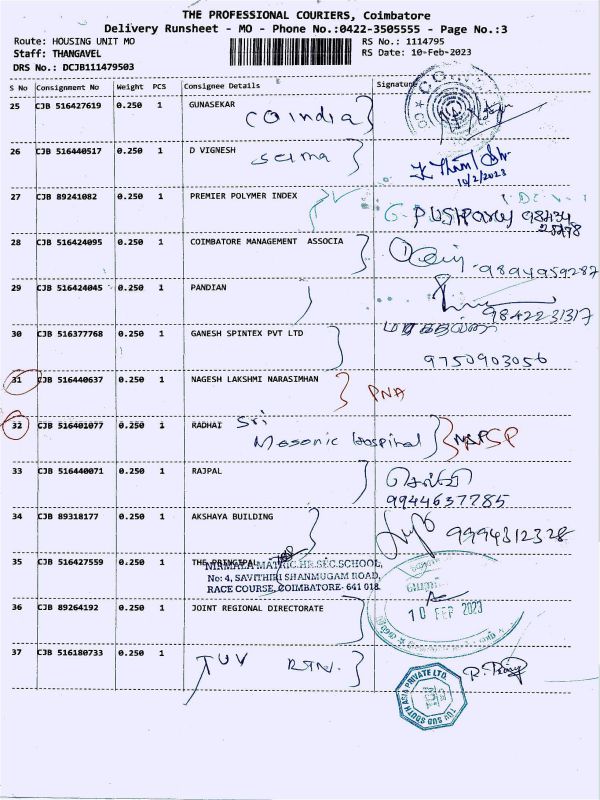 THE PROFESSIONAL COURIERS, Coimbatore
Delivery Runsheet - MO - Phone No.:0422-3505555 - Page No.:3
Route: HOUSING UNIT MO
Staff: THANGAVEL
DRS No.: DCJB111479503
RS No.: 1114795
RS Date: 10-Feb-2023
S No Consignment No Weight PCS Consignee Details Signature
25 CJB 516427619 0.250 1 GUNASEKAR
CO india
26 CJB 516440517 0.250 1 D VIGNESH
10/2/2023
27 CJB 89241082 0.250 1 PREMIER POLYMER INDEX
28 CJB 516424095 0.250 1 COIMBATORE MANAGEMENT ASSOCIA
9894959287
29 CJB 516424045 0.250 1 PANDIAN
9842231317
30 CJB 516377768 0.250 1 GANESH SPINTEX PVT LTD
9750903056
31 CJB 516440637 0.250 1 NAGESH LAKSHMI NARASIMHAN
PNA
32 CJB 516401077 0.250 1 RADHAI Sri
Masonic Hospital
33 CJB 516440071 0.250 1 RAJPAL
செல்வி
9944637785
34 CJB 89318177 0.250 1 AKSHAYA BUILDING
9994812328
35 CJB 516427559 0.250 1 THE PRINCIPAL
NIRMALA MATRIC.HR.SEC.SCHOOL,
No: 4, SAVITHIRI SHANMUGAM ROAD,
RACE COURSE, COIMBATORE- 641 018.
36 CJB 89264192 0.250 1 JOINT REGIONAL DIRECTORATE
10 FEB 2023
37 CJB 516180733 0.250 1
TUV
TUV SUD SOUTH ASIA PRIVATE LTD.